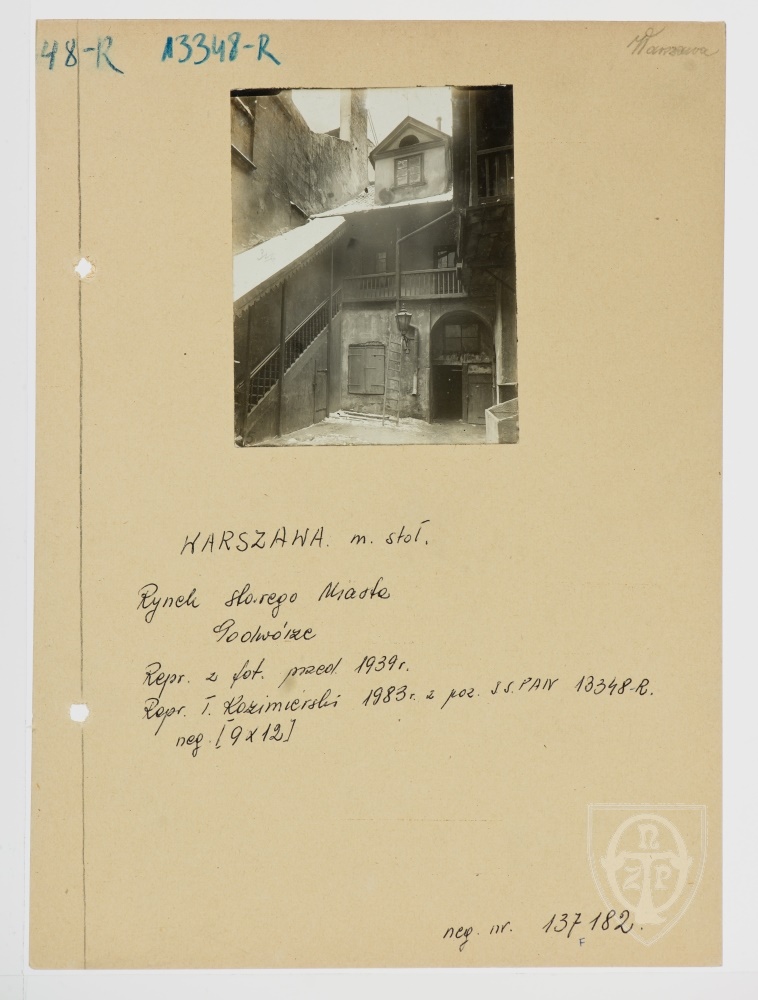 48-R 13348-R
Warszawa
WARSZAWA. m. stoł.
Rynek starego Miasta
Podwórze
Repr. z fot. przed 1939r.
Repr. T. Kazimierski 1983r. z poz. IS.PAN 13348-R.
neg. [9x12]
neg. nr. 137182.
F
TOnZP